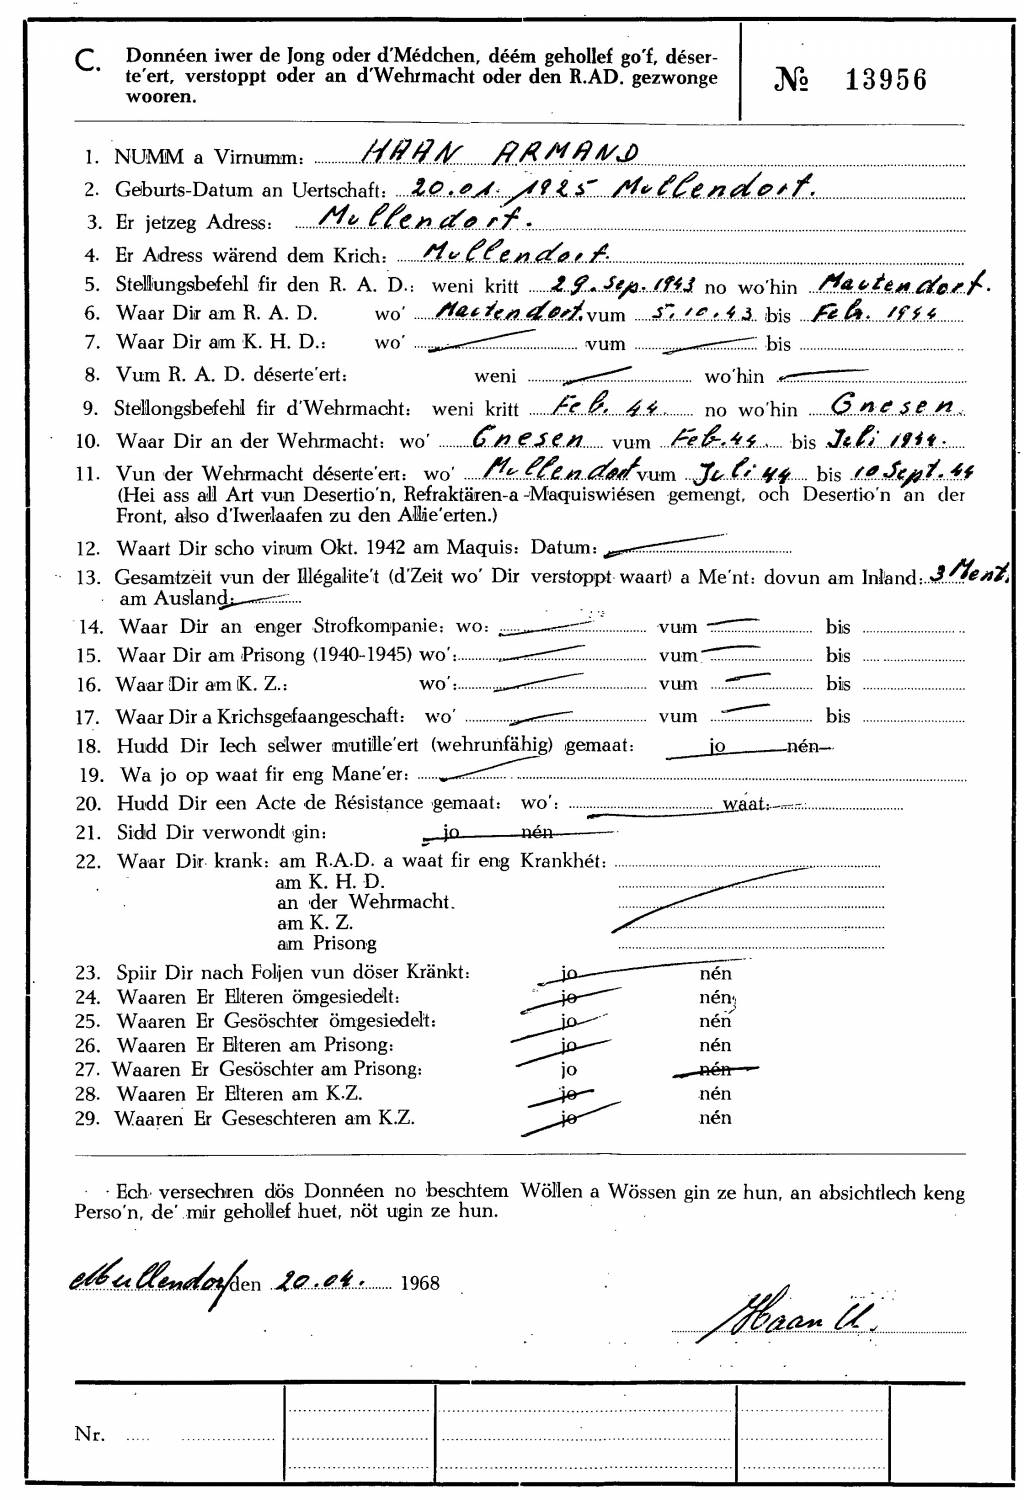 C. Donnéen iwer de Jong oder d'Médchen, déém gehollef go'f, déser-
te'ert, verstoppt oder an d'Wehrmacht oder den R.AD. gezwonge
wooren.
№ 13956
1. NUMM a Virnumm: HAAN ARMAND
2. Geburts-Datum an Uertschaft: 20.01.1925 Mullendorf.
3. Er jetzeg Adress: Mullendorf.
4. Er Adress wärend dem Krich: Mullendorf.
5. Stellungsbefehl fir den R. A. D.: weni kritt 29. Sep. 1943 no wo'hin Mautendorf.
6. Waar Dir am R. A. D. wo' Mautendorf. vum 5.10.43 bis Feb. 1944
7. Waar Dir am K. H. D.: wo' vum bis
8. Vum R. A. D. déserte'ert: weni wo'hin
9. Stellongsbefehl fir d'Wehrmacht: weni kritt Feb. 44 no wo'hin Gnesen.
10. Waar Dir an der Wehrmacht: wo' Gnesen vum Feb. 44. bis Juli 1944.
11. Vun der Wehrmacht déserte'ert: wo' Mullendorf vum Juli 44 bis 10 Sept. 44
(Hei ass all Art vun Desertio'n, Refraktären-a-Maquiswiésen gemengt, och Desertio'n an der
Front, also d'Iwerlaafen zu den Allie'erten.)
12. Waart Dir scho virum Okt. 1942 am Maquis: Datum:
13. Gesamtzeit vun der Illégalite't (d'Zeit wo' Dir verstoppt waart) a Me'nt: dovun am Inland: 3 Ment.
am Ausland:
14. Waar Dir an enger Strofkompanie: wo: vum bis
15. Waar Dir am Prisong (1940-1945) wo': vum bis
16. Waar Dir am K. Z.: wo': vum bis
17. Waar Dir a Krichsgefaangeschaft: wo' vum bis
18. Hudd Dir Iech selwer mutille'ert (wehrunfähig) gemaat: jo nén
19. Wa jo op waat fir eng Mane'er:
20. Hudd Dir een Acte de Résistance gemaat: wo': waat:
21. Sidd Dir verwondt gin: jo nén
22. Waar Dir krank: am R.A.D. a waat fir eng Krankhét:
am K. H. D.
an der Wehrmacht.
am K. Z.
am Prisong
23. Spiir Dir nach Foljen vun döser Kränkt: jo nén
24. Waaren Er Elteren ömgesiedelt: jo nén
25. Waaren Er Gesöschter ömgesiedelt: jo nén
26. Waaren Er Elteren am Prisong: jo nén
27. Waaren Er Gesöschter am Prisong: jo nén
28. Waaren Er Elteren am K.Z. jo nén
29. Waaren Er Geseschteren am K.Z. jo nén
Ech versechren dös Donnéen no beschtem Wöllen a Wössen gin ze hun, an absichtlech keng
Perso'n, de' mir gehollef huet, nöt ugin ze hun.
Mullendorf den 20.04. 1968
Haan A.
Nr.